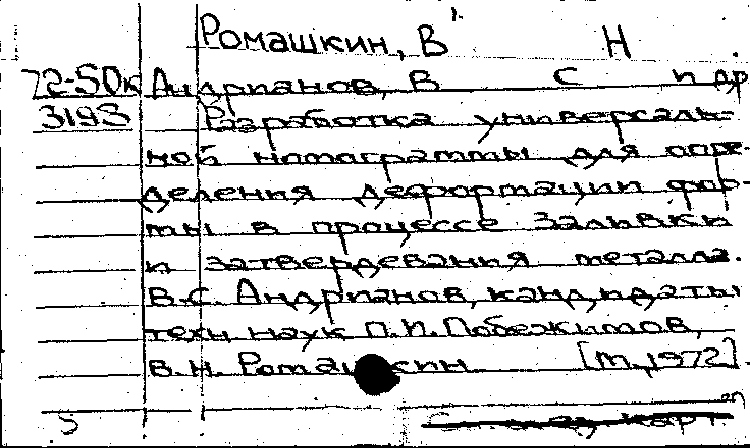 Ромашкин, В Н
72-50к Андрианов, В С и др
3193 Разработка универсаль-
ной номограммы для опре-
деления деформации фор-
мы в процессе заливки
и затвердевания металла.
В.С. Андрианов, кандидаты
техн наук П.И. Побежимов,
В.Н. Ромашкин [М, 1972].
5